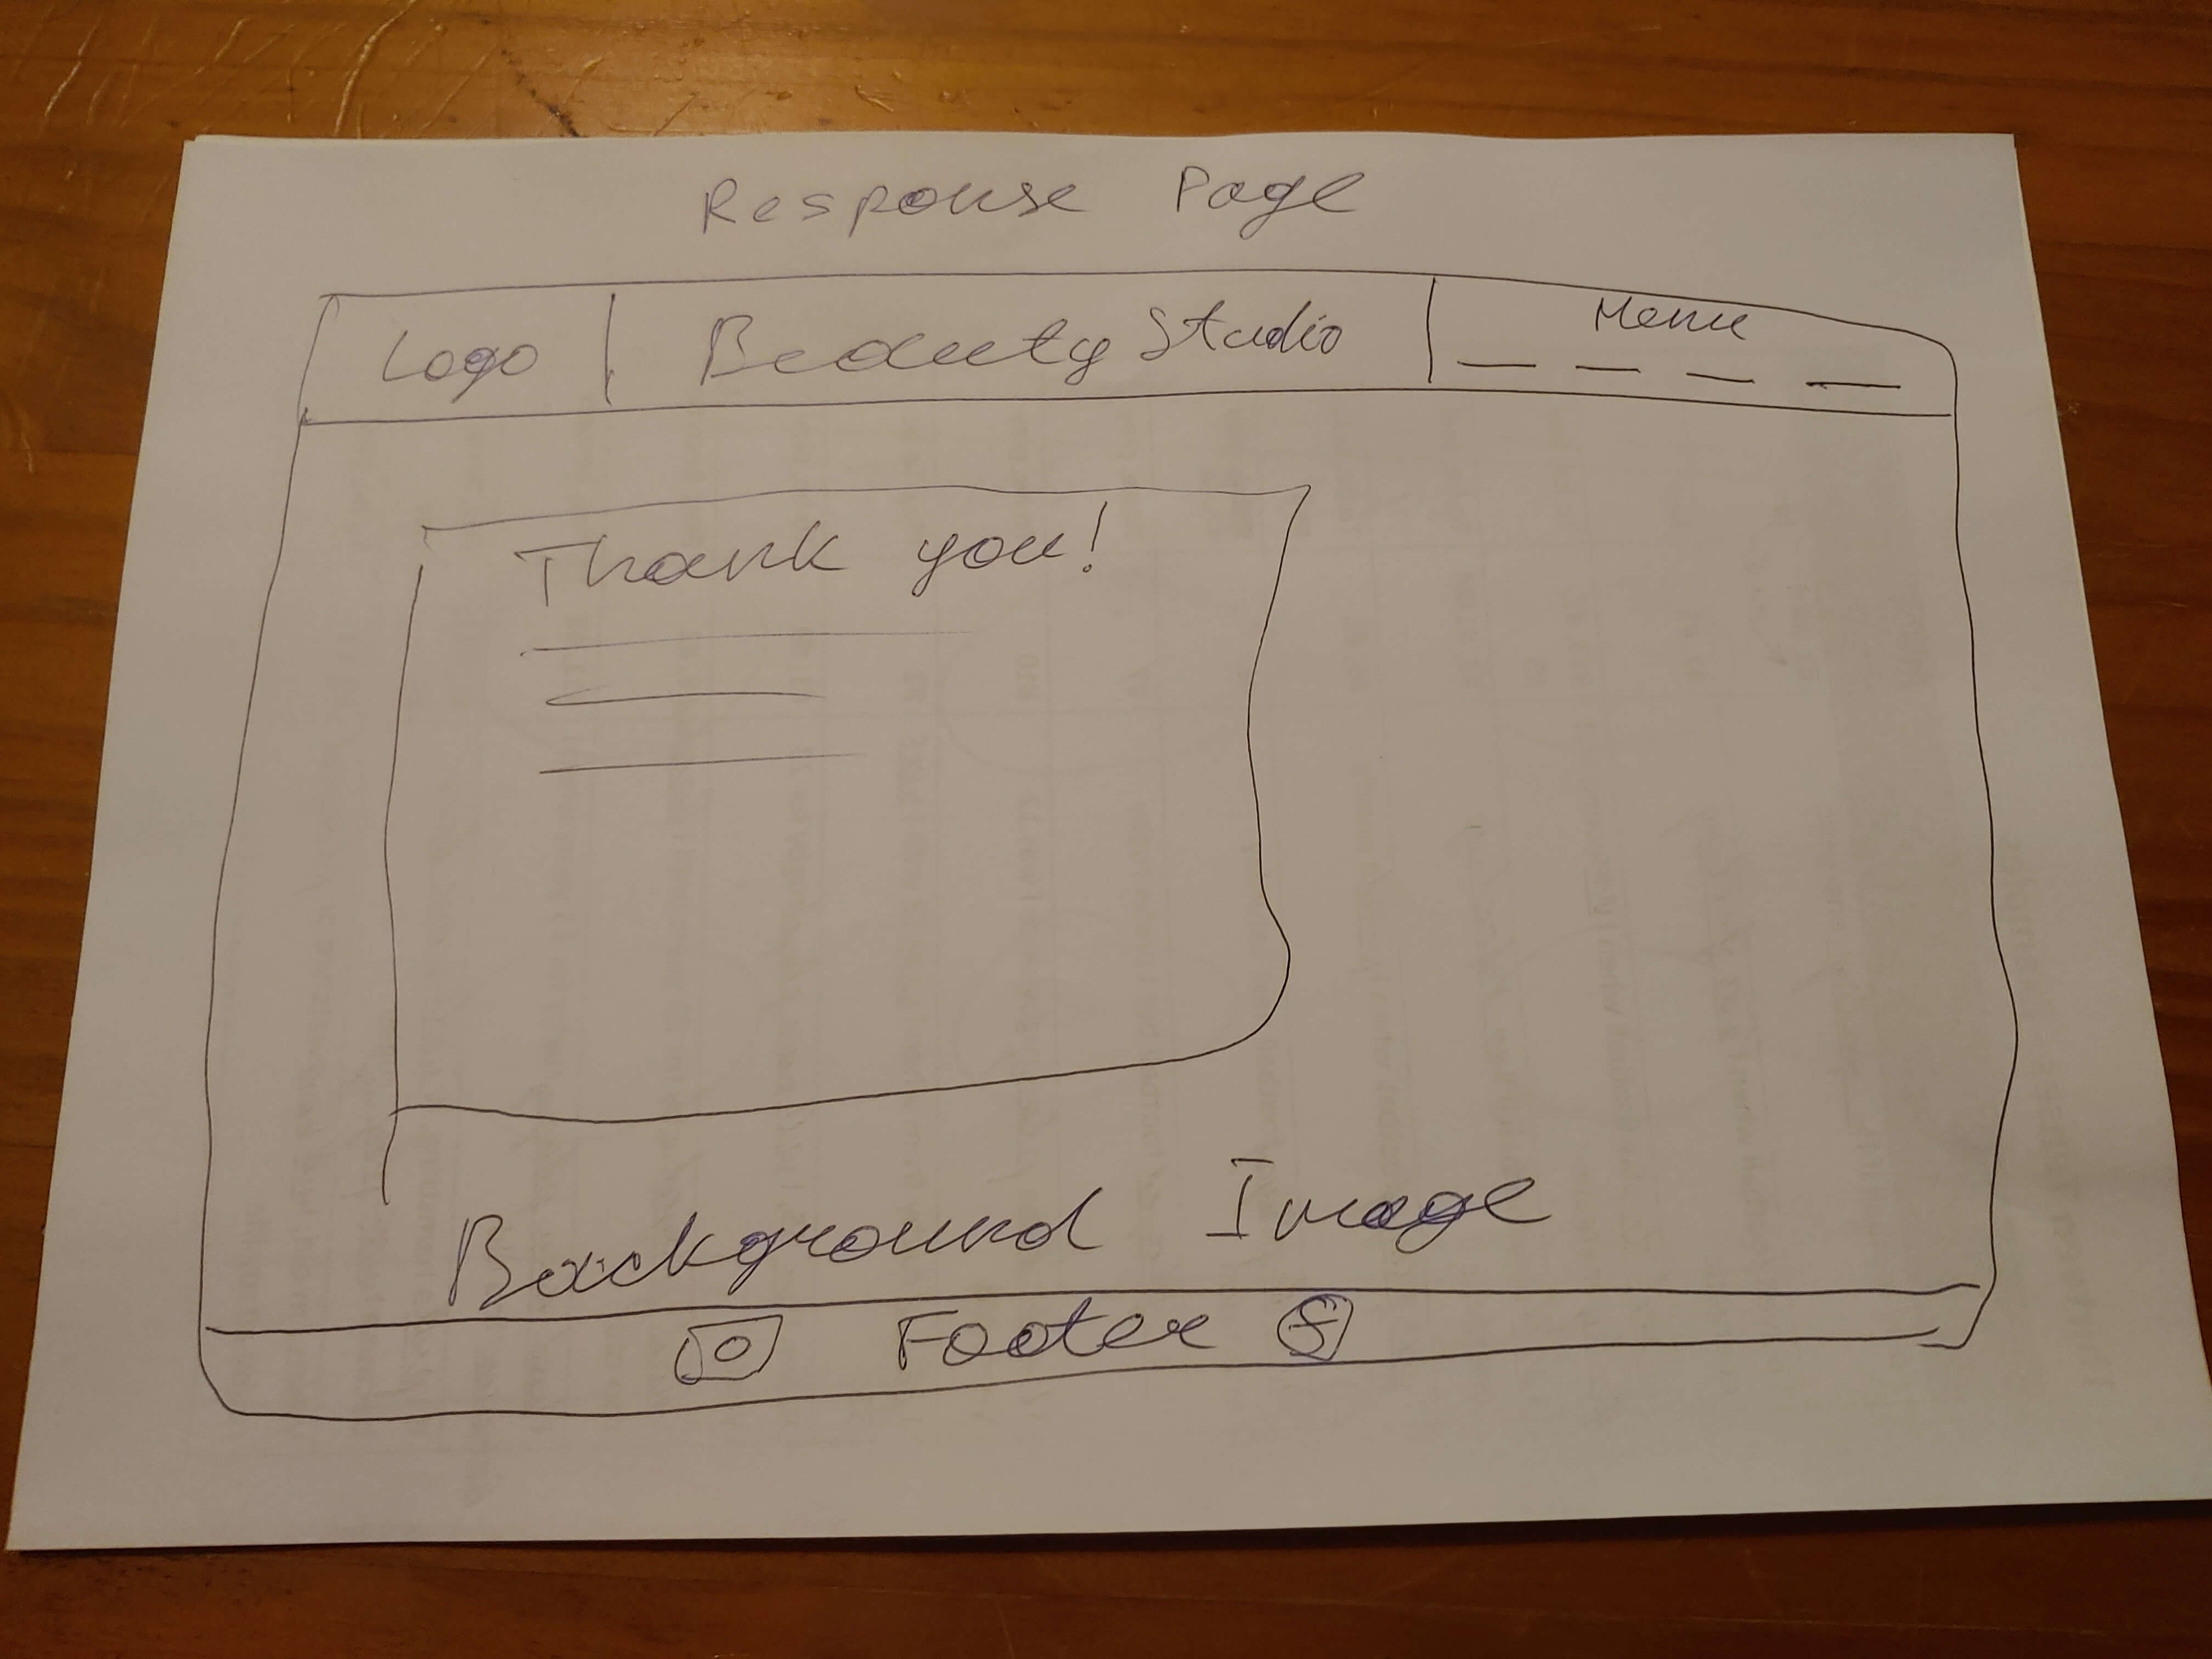 Response Page
Logo
Beauty Studio
Menu
Thank you!
Background Image
Footer